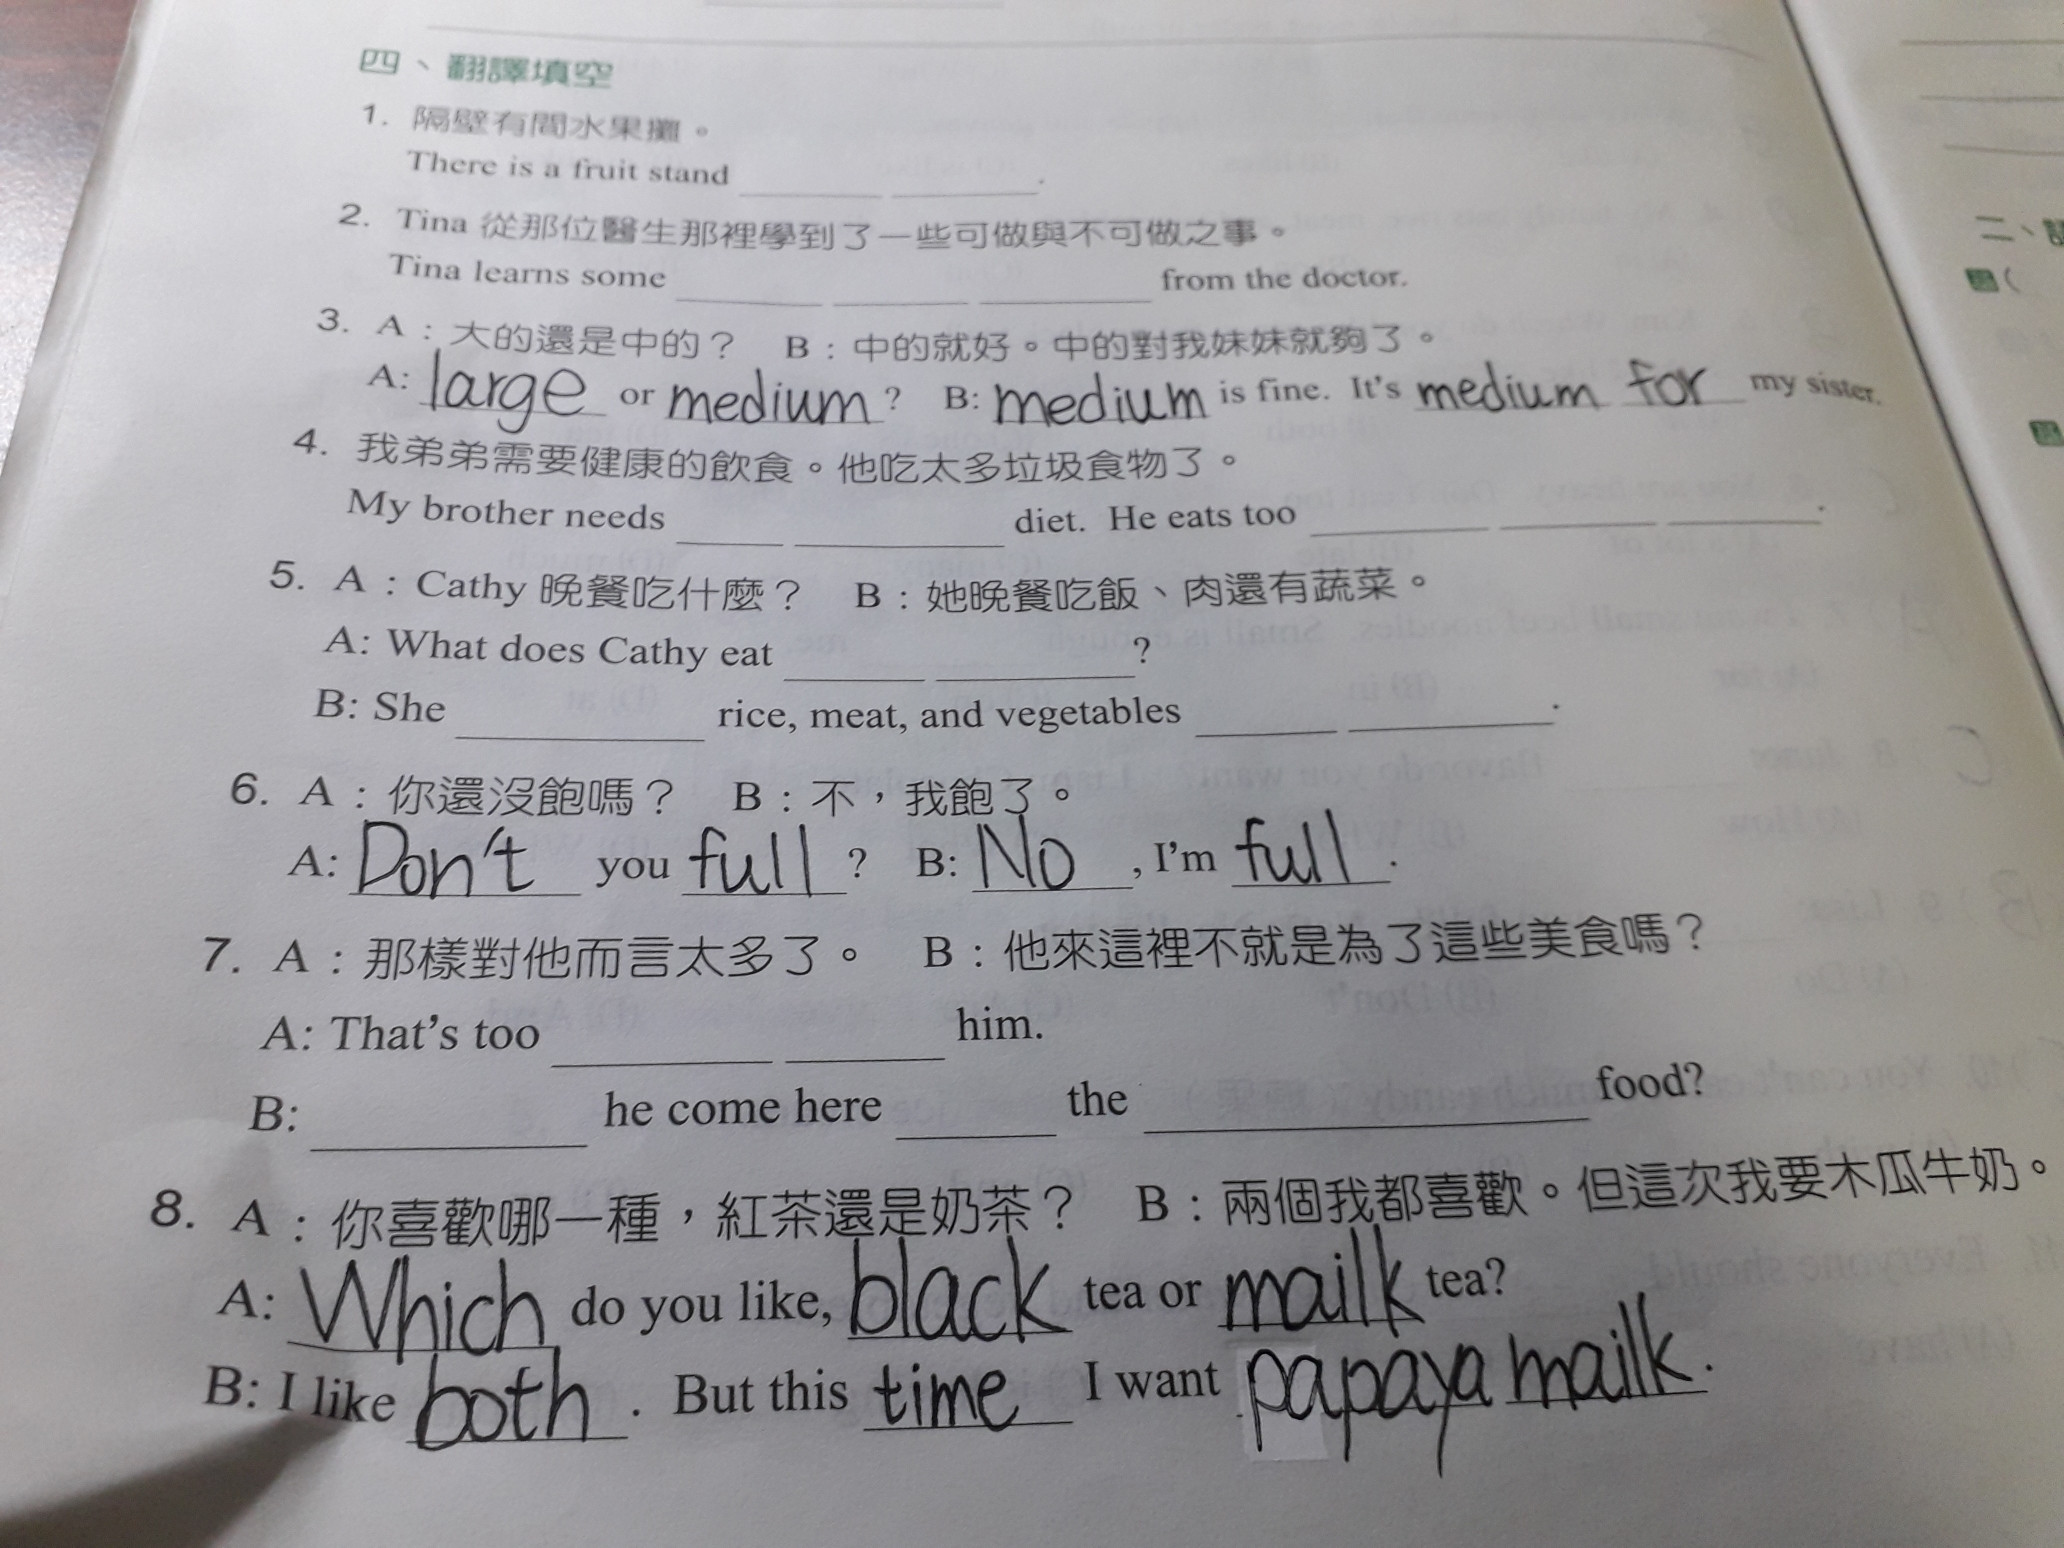 四、翻譯填空
1. 隔壁有間水果攤。
There is a fruit stand ______ ______.
2. Tina 從那位醫生那裡學到了一些可做與不可做之事。
Tina learns some ______ ______ ______ from the doctor.
3. A：大的還是中的？ B：中的就好。中的對我妹妹就夠了。
A: large or medium? B: medium is fine. It's medium for my sister.
4. 我弟弟需要健康的飲食。他吃太多垃圾食物了。
My brother needs ______ ______ diet. He eats too ______ ______ ______.
5. A：Cathy 晚餐吃什麼？ B：她晚餐吃飯、肉還有蔬菜。
A: What does Cathy eat ______ ______?
B: She ______ rice, meat, and vegetables ______ ______.
6. A：你還沒飽嗎？ B：不，我飽了。
A: Don't you full? B: No, I'm full.
7. A：那樣對他而言太多了。 B：他來這裡不就是為了這些美食嗎？
A: That's too ______ ______ him.
B: ______ he come here ______ the ______ food?
8. A：你喜歡哪一種，紅茶還是奶茶？ B：兩個我都喜歡。但這次我要木瓜牛奶。
A: Which do you like, black tea or mailk tea?
B: I like both. But this time I want papaya mailk.
二、